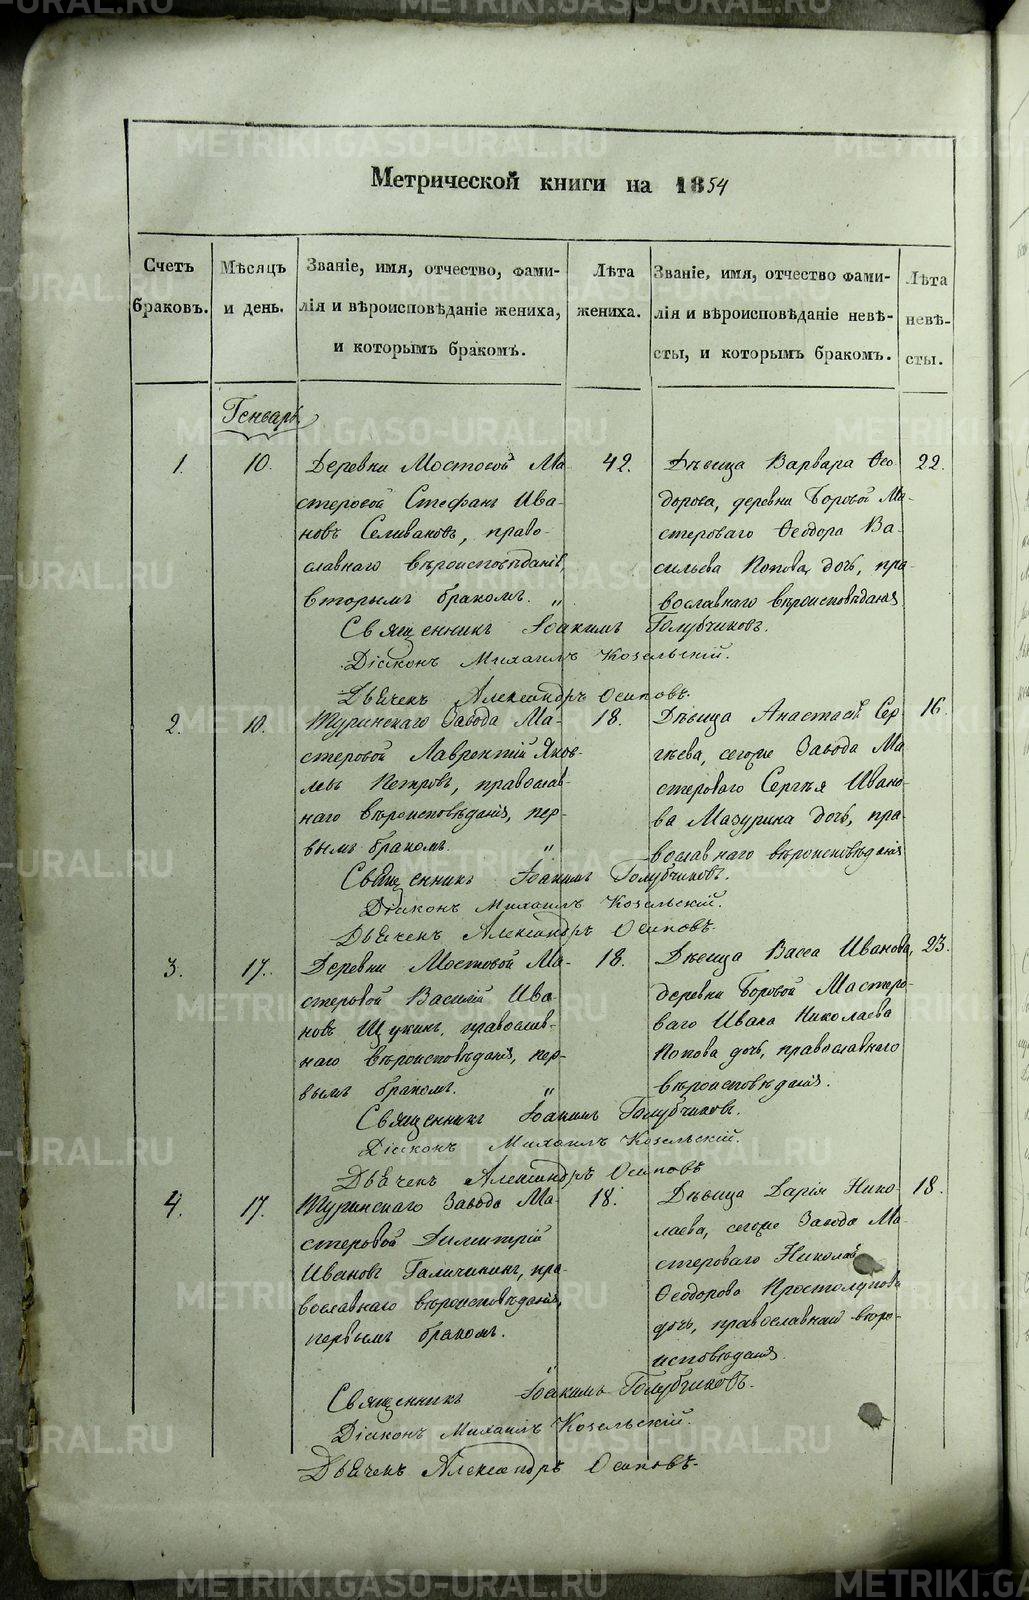 METRIKI.GASO-URAL.RU
Метрической книги на 1854
Счетъ браковъ.
Мѣсяцъ и день.
Званіе, имя, отчество, фами-
лія и вѣроисповѣданіе жениха,
и которымъ бракомъ.
Лѣта жениха.
Званіе, имя, отчество фами-
лія и вѣроисповѣданіе невѣ-
сты, и которымъ бракомъ.
Лѣта невѣ-
сты.
Генварь
1.
10.
Деревни Мостовой Ма-
стеровой Стефанъ Ива-
новъ Селивановъ, право-
славнаго вѣроисповѣданія,
вторымъ бракомъ. „
42.
Дѣвица Варвара Ѳео-
дорова, деревни Боровой Ма-
стероваго Ѳеодора Ва-
сильева Попова дочь, пра-
вославнаго вѣроисповѣданія
22.
Священникъ Іоакимъ Голубчиковъ.
Діаконъ Михаилъ Козельскій.
Дьячекъ Александръ Осиповъ.
2.
10.
Туринскаго Завода Ма-
стеровой Лаврентій Яков-
левъ Петровъ, православ-
наго вѣроисповѣданія, пер-
вымъ бракомъ. „
18.
Дѣвица Анастасія Сер-
гѣева, сегоже Завода Ма-
стероваго Сергѣя Ивано-
ва Мазурина дочь, пра-
вославнаго вѣроисповѣданія
16.
Священникъ Іоакимъ Голубчиковъ.
Діаконъ Михаилъ Козельскій.
Дьячекъ Александръ Осиповъ.
3.
17.
Деревни Мостовой Ма-
стеровой Василій Ива-
новъ Щукинъ, православ-
наго вѣроисповѣданія, пер-
вымъ бракомъ. „
18.
Дѣвица Васса Иванова,
деревни Боровой Мастеро-
ваго Ивана Николаева
Попова дочь, православнаго
вѣроисповѣданія.
23.
Священникъ Іоакимъ Голубчиковъ.
Діаконъ Михаилъ Козельскій.
Дьячекъ Александръ Осиповъ
4.
17.
Туринскаго Завода Ма-
стеровой Димитрій
Ивановъ Галичининъ, пра-
вославнаго вѣроисповѣданія,
первымъ бракомъ. „
18.
Дѣвица Дарія Нико-
лаева, сегоже Завода Ма-
стероваго Николая
Ѳеодорова Простолупова
дочь, православнаго вѣро-
исповѣданія
18.
Священникъ Іоакимъ Голубчиковъ.
Діаконъ Михаилъ Козельскій.
Дьячекъ Александръ Осиповъ.